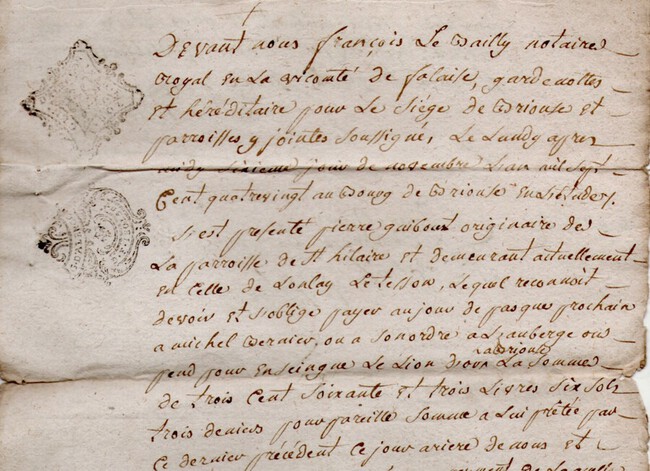 Devant nous françois Le Bailly notaire
Royal en La vicomté de falaise, gardenottes
et héréditaire pour Le Siége de Briouse et
parroisses y jointes soussigné, Le Lundy apres
midy sixieme jour de novembre L'an mil sept
Cent quatrevingt au Bourg de Briouse En L'etude /.
s'est présenté pierre guibout originaire de
La parroisse de St hilaire et demeurant actuellement
en Celle de Lonlay Le tesson, Lequel reconnoit
devoir et s'oblige payer au jour de pasque prochain
a michel Bernier, ou a son ordre a L'auberge ou
La Briouse
pend pour Enseingne Le Lion d'or La Somme
de trois Cent Soixante et trois Livres Six Sols
trois deniers pour pareille Somme a Lui prétée par
Ce dernier précédent Ce jour ariere de nous et